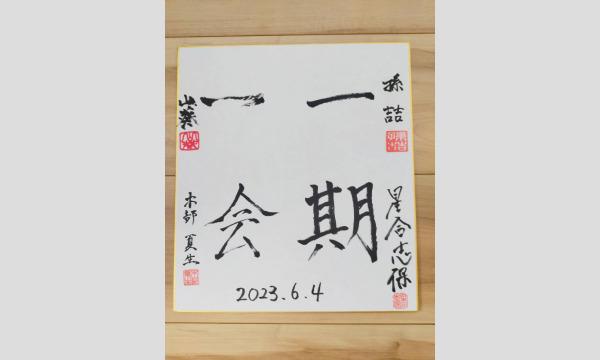 孫 喆
星合志保
一期
一会
山森
木部 夏生
2023.6.4